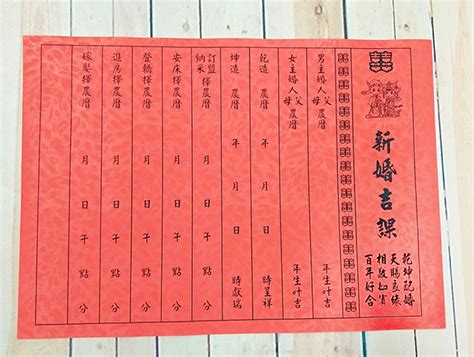 囍
新婚吉課
乾坤記婚
天賜良緣
相敬如賓
百年好合
男主婚人父母農曆 年生叶吉
女主婚人父母農曆 年生叶吉
乾造農曆 年 月 日 時呈祥
坤造農曆 年 月 日 時獻瑞
訂盟納采擇農曆 月 日 午 點 分
安床擇農曆 月 日 午 點 分
登轎擇農曆 月 日 午 點 分
進房擇農曆 月 日 午 點 分
嫁娶擇農曆 月 日 午 點 分